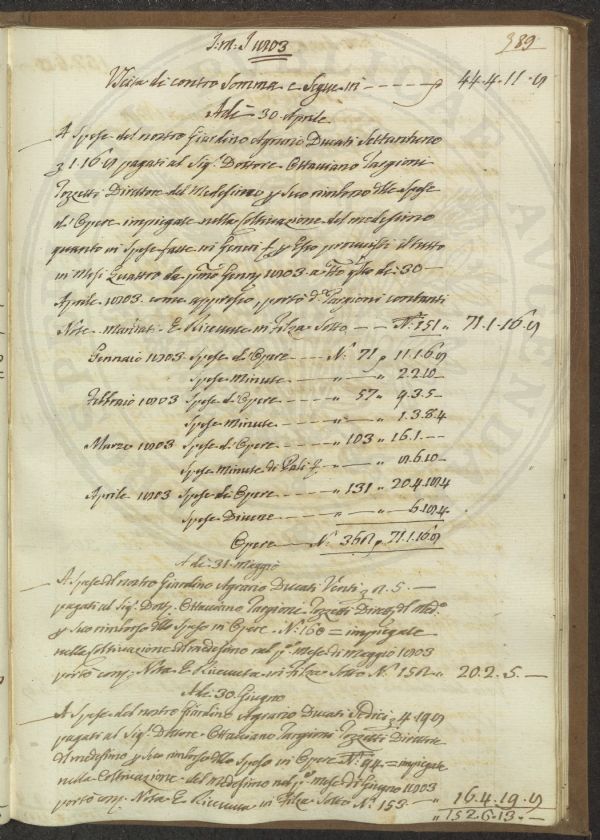 389
J: M: J 1803
Uscita di contro Somma e Segue in ----- 44.4.11.8
Adì 30 Aprile
A Spese del nostro Giardino Agrario Ducati Settantuno
1.16.8 pagati al Sig.r Dottore Ottaviano Targioni
Tozzetti Direttore del Medesimo p Suo rimborso delle Spese
d'Opere impiegate nella Coltivazione del medesimo
quanto in Spese fatte in Generi p Esso provvisti il tutto
in Mesi Quattro da p.mo Genn.o 1803 a tto q.sto dì 30
Aprile 1803 come appresso, portò d. Targioni contanti
Note mandat. E Ricevute in Filza Sotto --- N.o 151 " 71.1.16.8
Gennaio 1803 Spese d'Opere --- N.o 71 p 11.1.6.8
Spese Minute --- " --- " 2.2.10 -
Febbraio 1803 Spese d'Opere --- " 57 " 9.3.5 -
Spese Minute --- " --- " 1.3.8.4
Marzo 1803 Spese d'Opere --- " 103 " 16.1. --
Spese Minute di Pali --- " --- " 8.6.10 -
Aprile 1803 Spese di Opere --- " 131 " 20.4.18.4
Spese Diverse --- " --- " - 6.18.4
Opere --- N.o 362 p 71.1.16.8
Adì 31 Maggio
A Spese del nostro Giardino Agrario Ducati Venti 2.5. -
pagati al Sig.r Dott.e Ottaviano Targioni Tozzetti Dirett.e del Med.o
p Suo rimborso delle Spese in Opere N.o 160 = impiegate
nella Coltivazione del medesimo nel p.o mese di Maggio 1803
portò cont. Nota E Ricevuta in Filza Sotto N.o 152 " 20.2.5. -
Adì 30 Giugno
A Spese del nostro Giardino Agrario Ducati Sedici 4.19.8
pagati al Sig.r Dottore Ottaviano Targioni Tozzetti Direttore
del medesimo p Suo rimborso delle Spese in Opere N.o 94 = impiegate
nella Coltivazione del medesimo nel p.o mese di Giugno 1803
portò cont. Nota E Ricevuta in Filza Sotto N.o 153 -- " 16.4.19.8
" 152.6.13. -